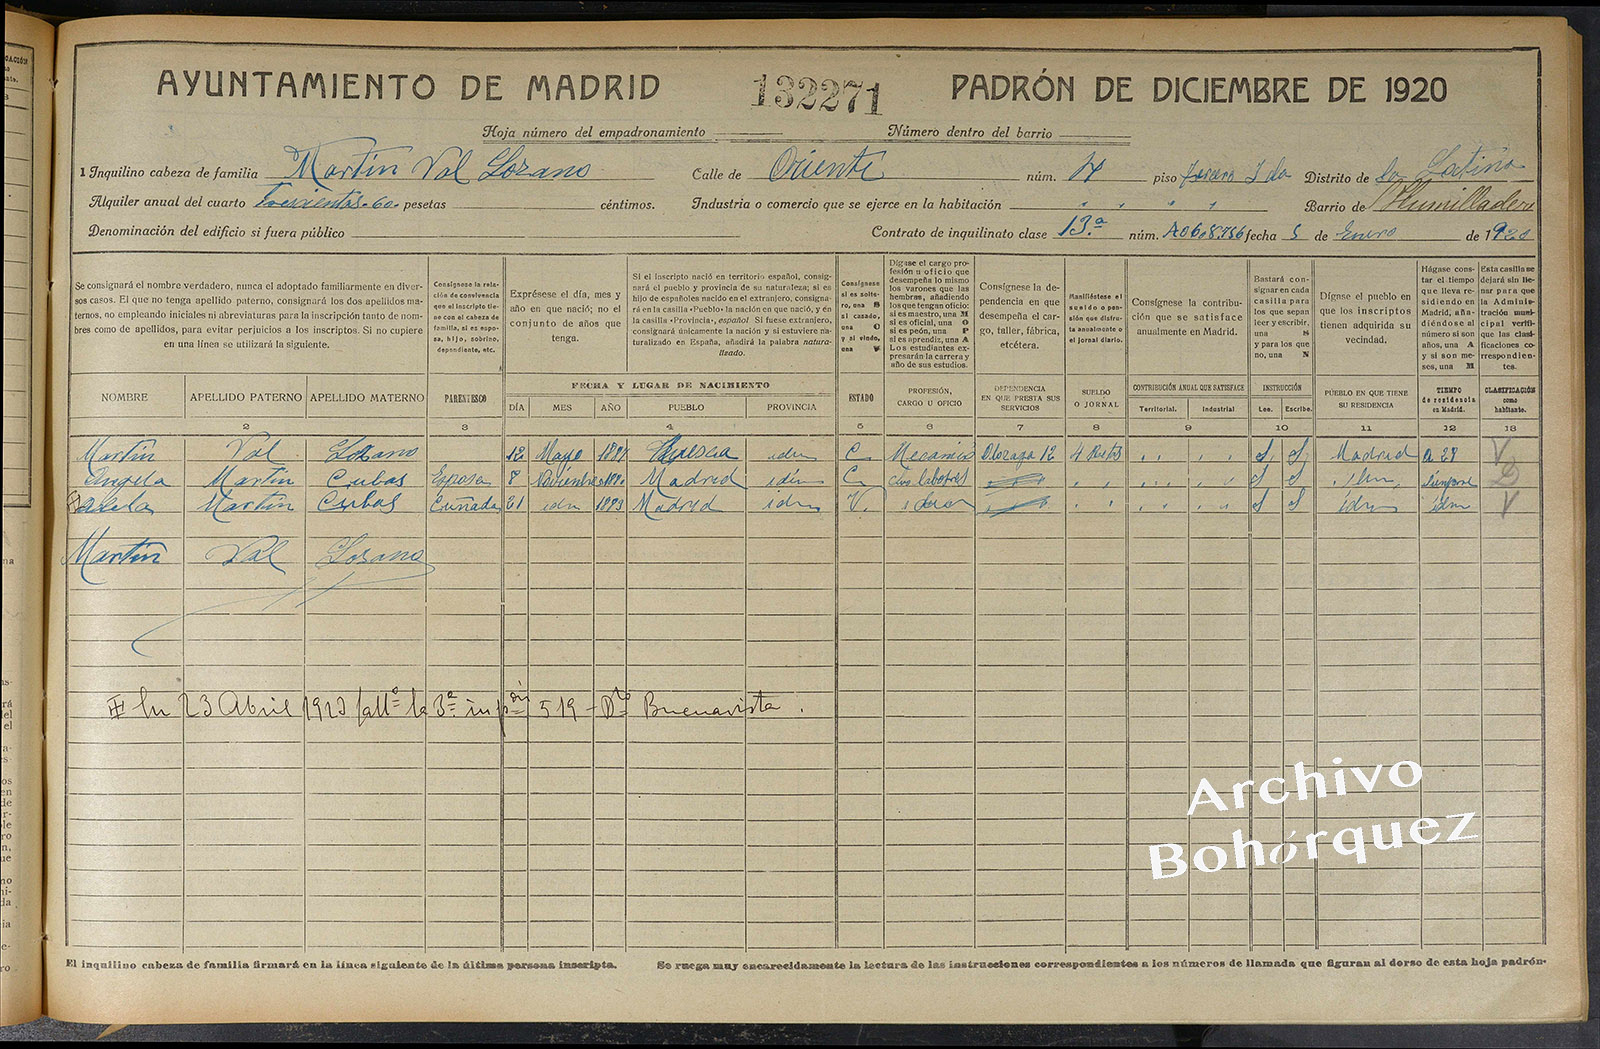 AYUNTAMIENTO DE MADRID 132271 PADRÓN DE DICIEMBRE DE 1920
Hoja número del empadronamiento Número dentro del barrio
1 Inquilino cabeza de familia Martín Val Lozano Calle de Oriente núm. piso tercero Distrito de la Latina
Alquiler anual del cuarto pesetas céntimos. Industria o comercio que se ejerce en la habitación Barrio de Humilladero
Denominación del edificio si fuera público Contrato de inquilinato clase 13.ª núm. A0608756 fecha 5 de Enero de 1920
Se consignará el nombre verdadero, nunca el adoptado familiarmente en diversos casos. El que no tenga apellido paterno, consignará los dos apellidos maternos, no empleando iniciales ni abreviaturas para la inscripción tanto de nombres como de apellidos, para evitar perjuicios a los inscriptos. Si no cupiere en una línea se utilizará la siguiente.
Consígnese la relación de convivencia que el inscripto tiene con el cabeza de familia, si es esposa, hijo, sobrino, dependiente, etc.
Exprésese el día, mes y año en que nació; no el conjunto de años que tenga.
Si el inscripto nació en territorio español, consignará el pueblo y provincia de su naturaleza; si es hijo de españoles nacido en el extranjero, consignará en la casilla «Pueblo» la nación en que nació, y en la casilla «Provincia», español. Si fuese extranjero, consignará únicamente la nación y si estuviere naturalizado en España, añadirá la palabra naturalizado.
Consígnese si es soltero, una S si casado, una C y si viudo, una V.
Dígase el cargo profesión u oficio que desempeña lo mismo los varones que las hembras, añadiendo los que tengan oficio: si es maestro, una M si es oficial, una O si es peón, una P si es aprendiz, una A Los estudiantes expresarán la carrera y año de sus estudios.
Consígnese la dependencia en que desempeña el cargo, taller, fábrica, etcétera.
Manifiéstese el sueldo o pensión que disfruta anualmente o el jornal diario.
Consígnese la contribución que se satisface anualmente en Madrid.
Bastará consignar en cada casilla para los que sepan leer y escribir, una S y para los que no, una N
Dígase el pueblo en que los inscriptos tienen adquirida su vecindad.
Hágase constar el tiempo que lleva residiendo en Madrid, añadiéndose al número si son años, una A y si son meses, una M
Esta casilla se dejará sin llenar para que la Administración municipal verifique las clasificaciones correspondientes.
NOMBRE APELLIDO PATERNO APELLIDO MATERNO PARENTESCO FECHA Y LUGAR DE NACIMIENTO ESTADO PROFESIÓN, CARGO U OFICIO DEPENDENCIA EN QUE PRESTA SUS SERVICIOS SUELDO O JORNAL CONTRIBUCIÓN ANUAL QUE SATISFACE INSTRUCCIÓN PUEBLO EN QUE TIENE SU RESIDENCIA TIEMPO de residencia en Madrid. CLASIFICACIÓN como habitante.
DÍA MES AÑO PUEBLO PROVINCIA Territorial. Industrial Lee. Escribe.
2 3 4 5 6 7 8 9 10 11 12 13
Martín Val Lozano 12 Mayo Huesca idem C. Mecánico 12 S S Madrid V
Angela Martín Cubas Esposa 8 Madrid idem C. sus labores S S idem siempre
Adela Martín Cubas Cuñada 21 idem 1893 Madrid idem V. idem S S idem idem V
Martín Val Lozano
En 23 Abril 1923 fallº la 3ª inspón 519 - Dto Buenavista.
El inquilino cabeza de familia firmará en la línea siguiente de la última persona inscripta. Se ruega muy encarecidamente la lectura de las instrucciones correspondientes a los números de llamada que figuran al dorso de esta hoja padrón.
Archivo
Bohórquez